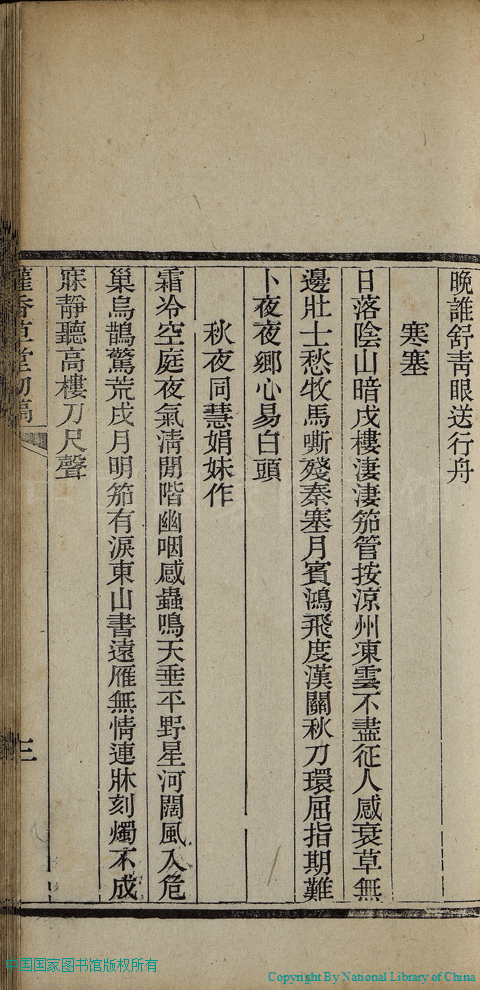 晚誰舒靑眼送行舟
寒塞
日落陰山暗戍樓淒淒笳管按涼州凍雲不盡征人感衰草無
邊壯士愁牧馬嘶殘秦塞月賓鴻飛度漢關秋刀環屈指期難
卜夜夜鄉心易白頭
秋夜同慧娟妹作
霜冷空庭夜氣清閒階幽咽感蟲鳴天垂平野星河闊風入危
巢烏鵲驚荒戍月明笳有淚東山書遠雁無情連牀刻燭不成
寐靜聽高樓刀尺聲
香草堂初稿
三
中国国家图书馆版权所有
Copyright By National Library of China